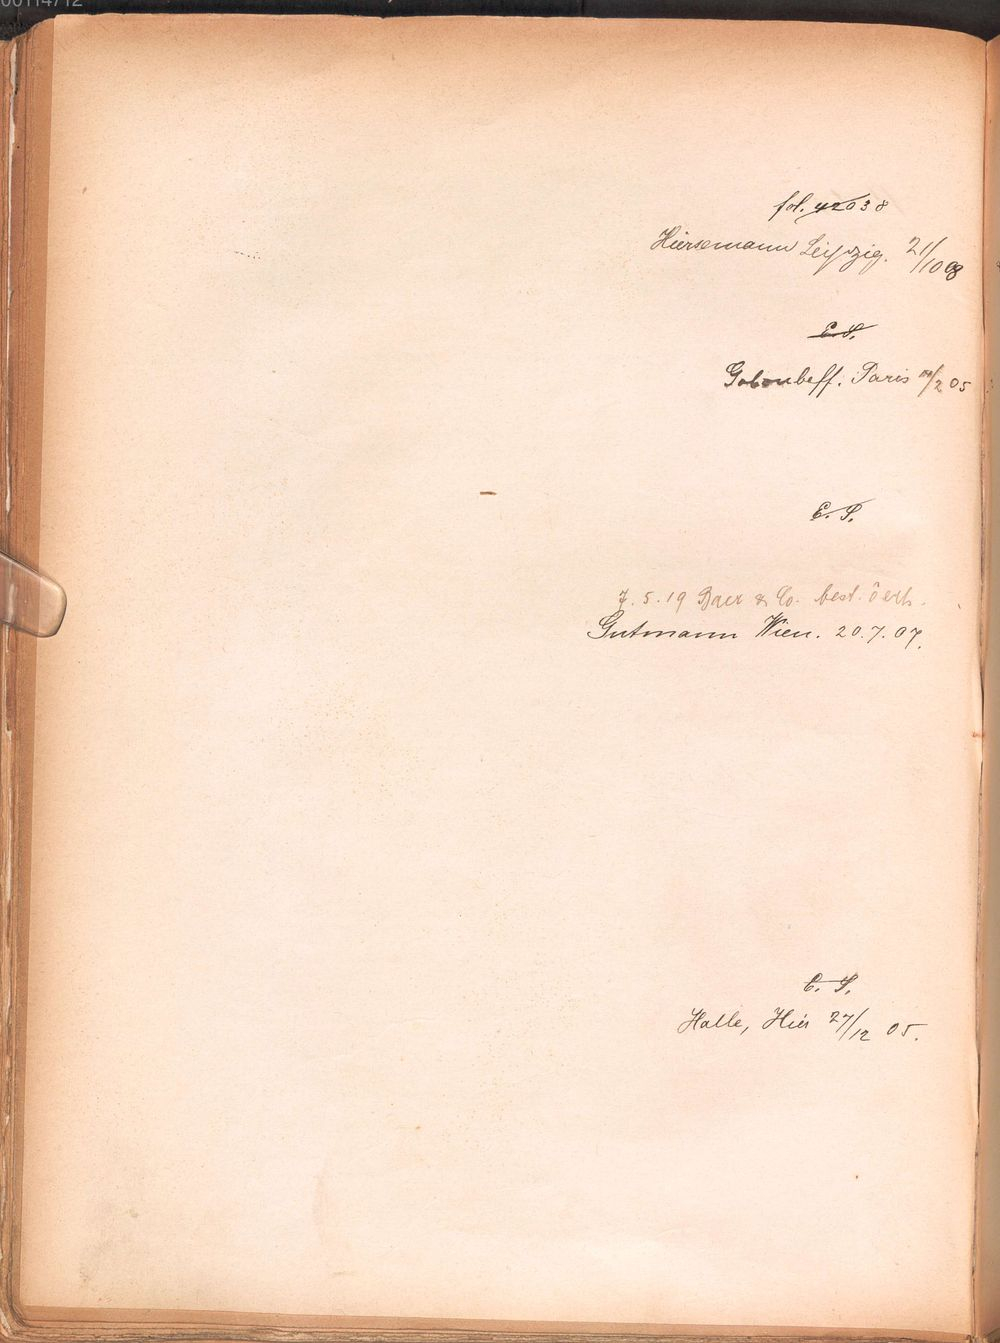 00114712
fol. 42038
Hiersemann Leipzig. 21/10 08
E. S.
Goloubeff. Paris /2 05
E. S.
7. 5. 19 Baer & Co. best.
Gutmann Wien. 20. 7. 07.
E. S.
Halle, Hier 27/12 05.